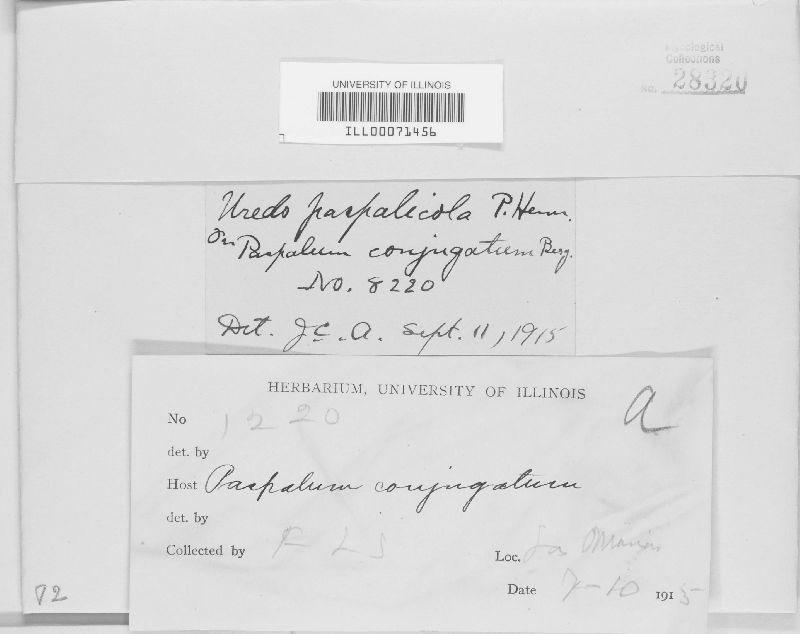 Mycological
Collections
No. 28320
UNIVERSITY OF ILLINOIS
ILL00071456
Uredo paspalicola P. Henn.
On Paspalum conjugatum Berg.
No. 8220
Det. J.C.A. Sept. 11, 1915
HERBARIUM, UNIVERSITY OF ILLINOIS
a
No 1220
det. by
Host Paspalum conjugatum
det. by
Collected by F L S
Loc. Las Marias
Date 7-10 1915